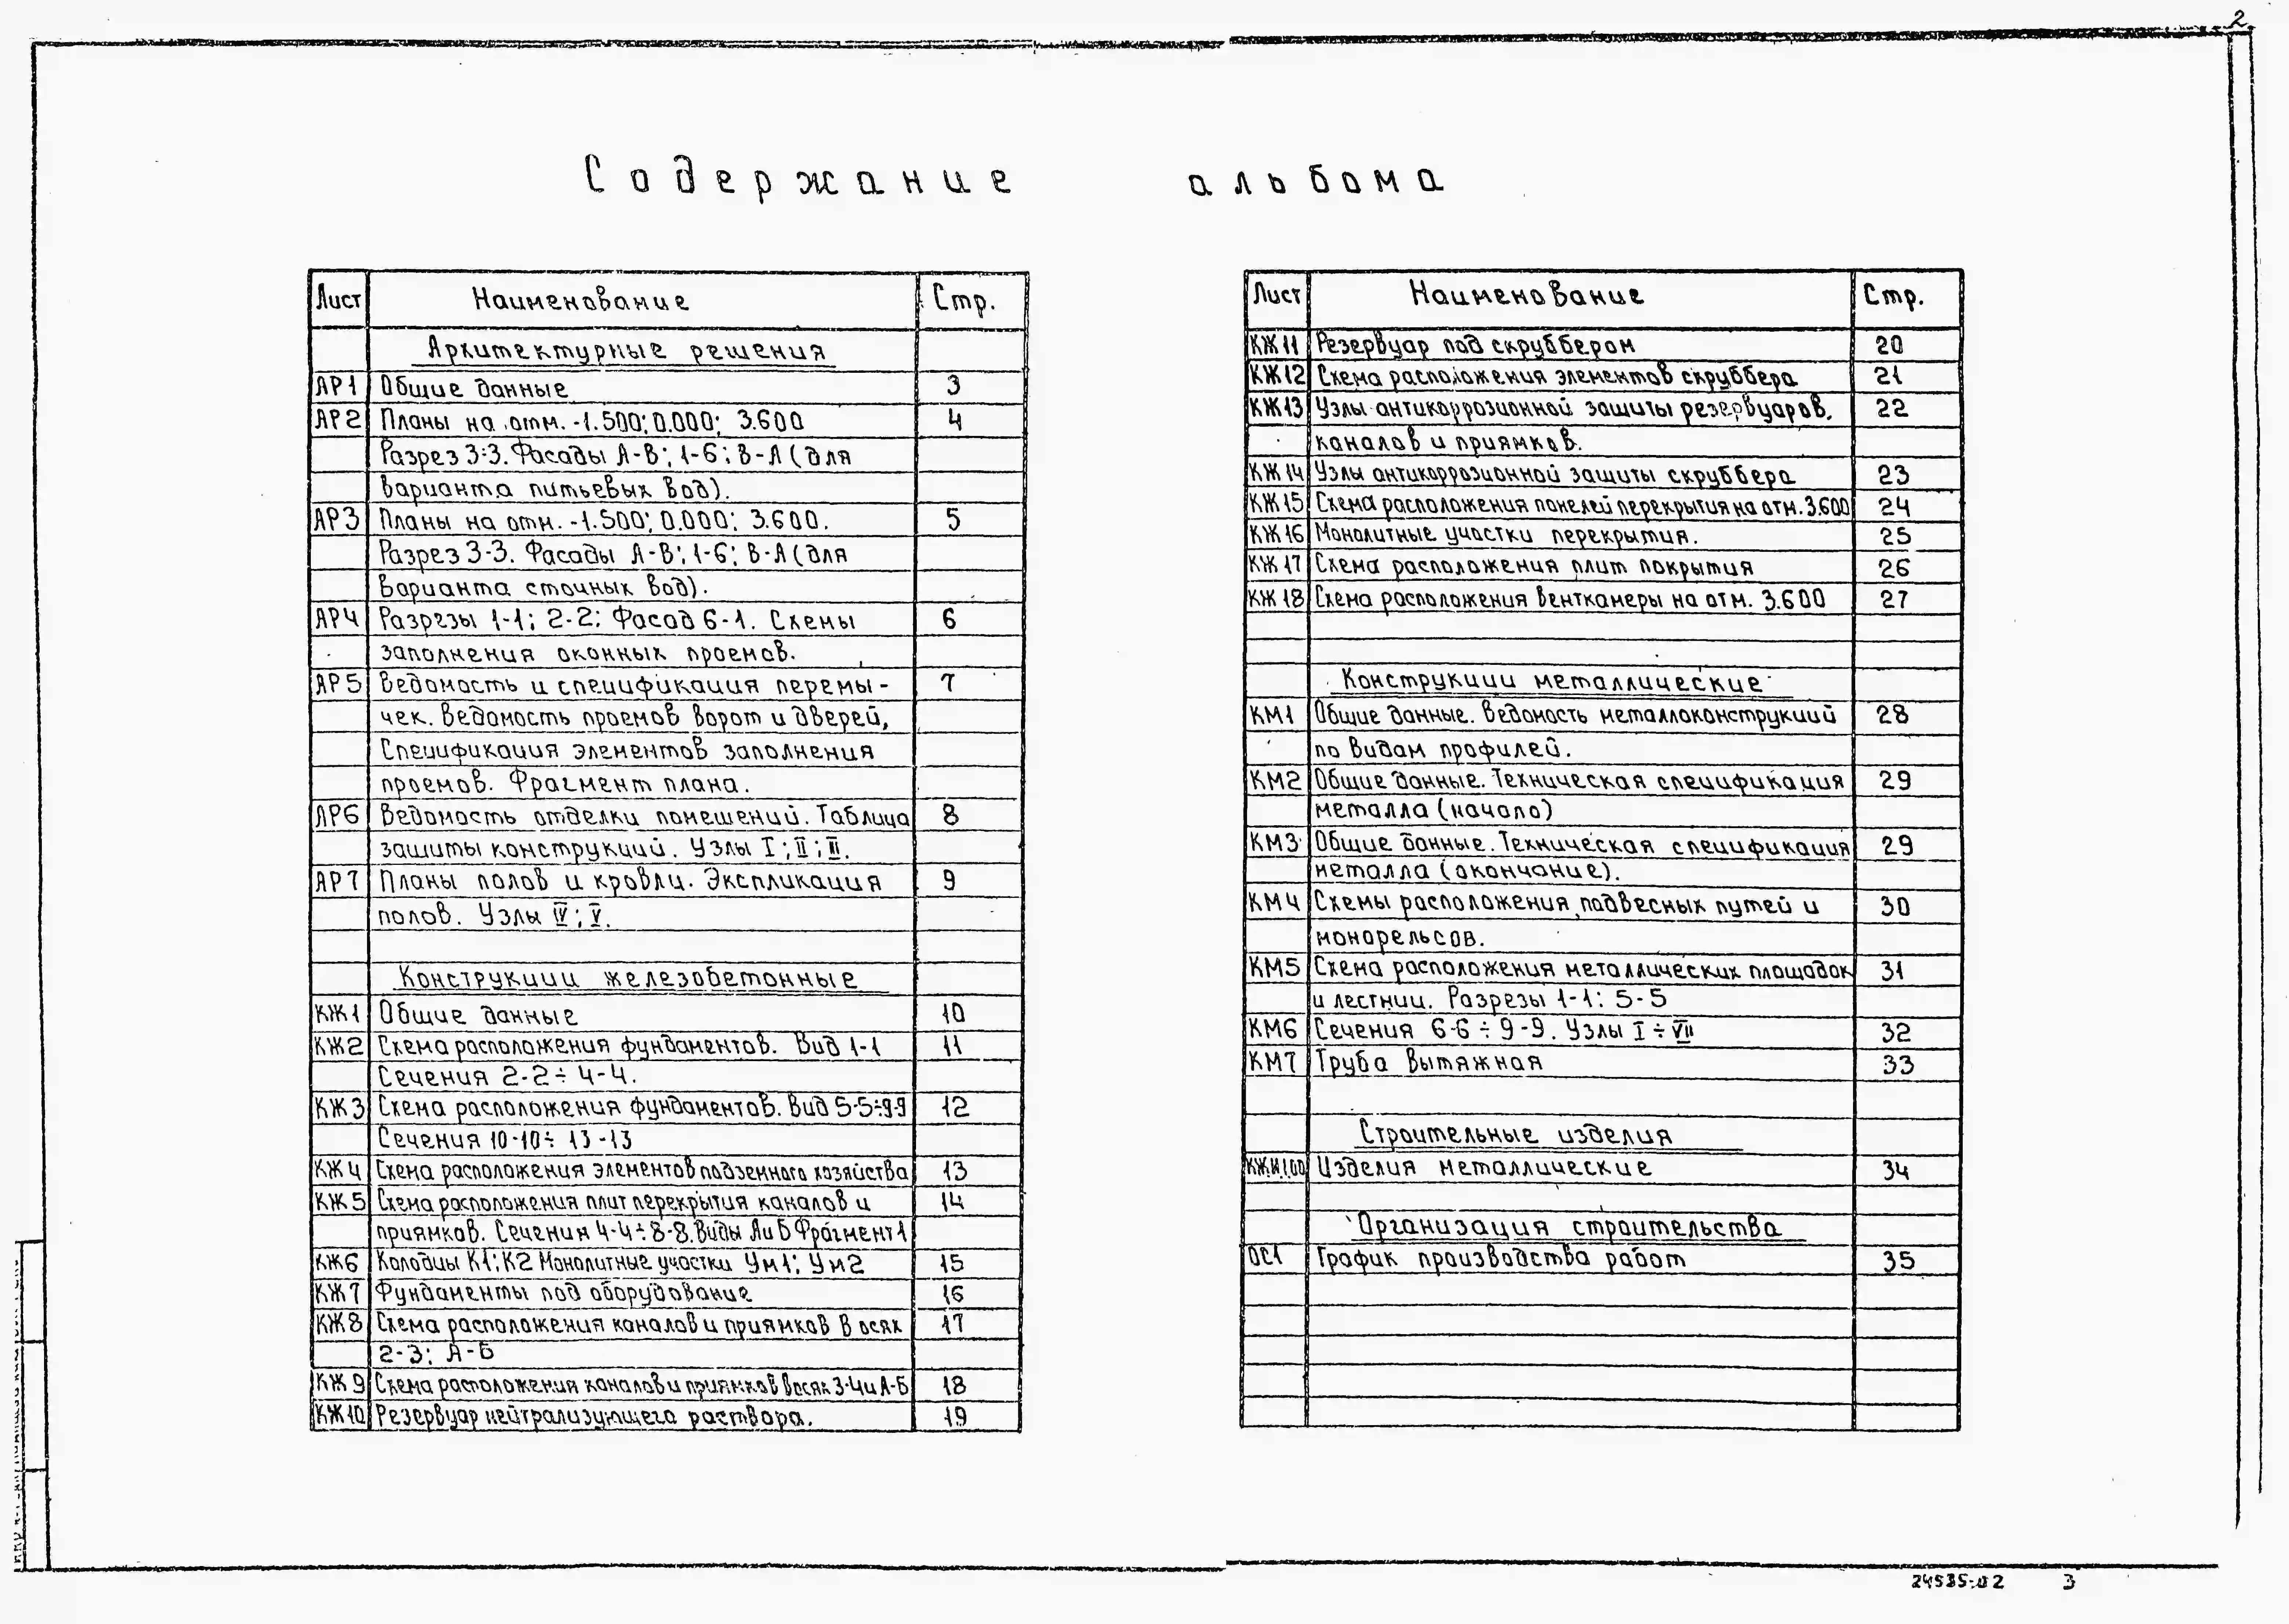 2
Содержание альбома
Лист Наименование Стр.
Архитектурные решения
АР1 Общие данные 3
АР2 Планы на отм. -1.500; 0.000; 3.600 4
Разрез 3-3. Фасады А-В; 1-6; В-А (для
варианта питьевых вод).
АР3 Планы на отм. -1.500; 0.000; 3.600. 5
Разрез 3-3. Фасады А-В; 1-6; В-А (для
варианта сточных вод).
АР4 Разрезы 1-1; 2-2; Фасад 6-1. Схемы 6
заполнения оконных проемов.
АР5 Ведомость и спецификация перемы- 7
чек. Ведомость проемов ворот и дверей,
Спецификация элементов заполнения
проемов. Фрагмент плана.
АР6 Ведомость отделки помещений. Таблица 8
защиты конструкций. Узлы I; II; III.
АР7 Планы полов и кровли. Экспликация 9
полов. Узлы IV; V.
Конструкции железобетонные
КЖ1 Общие данные 10
КЖ2 Схема расположения фундаментов. Вид 1-1 11
Сечения 2-2÷4-4.
КЖ3 Схема расположения фундаментов. Вид 5-5÷9-9 12
Сечения 10-10÷13-13
КЖ4 Схема расположения элементов подземного хозяйства 13
КЖ5 Схема расположения плит перекрытия каналов и 14
приямков. Сечения 4-4÷8-8. Виды А и Б Фрагмент 1
КЖ6 Колодцы К1; К2 Монолитные участки Ум1; Ум2 15
КЖ7 Фундаменты под оборудование 16
КЖ8 Схема расположения каналов и приямков в осях 17
2-3; А-Б
КЖ9 Схема расположения каналов и приямков в осях 3-4 и А-Б 18
КЖ10 Резервуар нейтрализующего раствора. 19
Лист Наименование Стр.
КЖ11 Резервуар под скруббером 20
КЖ12 Схема расположения элементов скруббера 21
КЖ13 Узлы антикоррозионной защиты резервуаров, 22
каналов и приямков.
КЖ14 Узлы антикоррозионной защиты скруббера 23
КЖ15 Схема расположения панелей перекрытия на отм. 3.600 24
КЖ16 Монолитные участки перекрытия. 25
КЖ17 Схема расположения плит покрытия 26
КЖ18 Схема расположения венткамеры на отм. 3.600 27
Конструкции металлические
КМ1 Общие данные. Ведомость металлоконструкций 28
по видам профилей.
КМ2 Общие данные. Техническая спецификация 29
металла (начало)
КМ3 Общие данные. Техническая спецификация 29
металла (окончание).
КМ4 Схемы расположения подвесных путей и 30
монорельсов.
КМ5 Схема расположения металлических площадок 31
и лестниц. Разрезы 1-1: 5-5
КМ6 Сечения 6-6÷9-9. Узлы I÷VII 32
КМ7 Труба вытяжная 33
Строительные изделия
КЖИ.100 Изделия металлические 34
Организация строительства
ОС1 График производства работ 35
24535-02 3